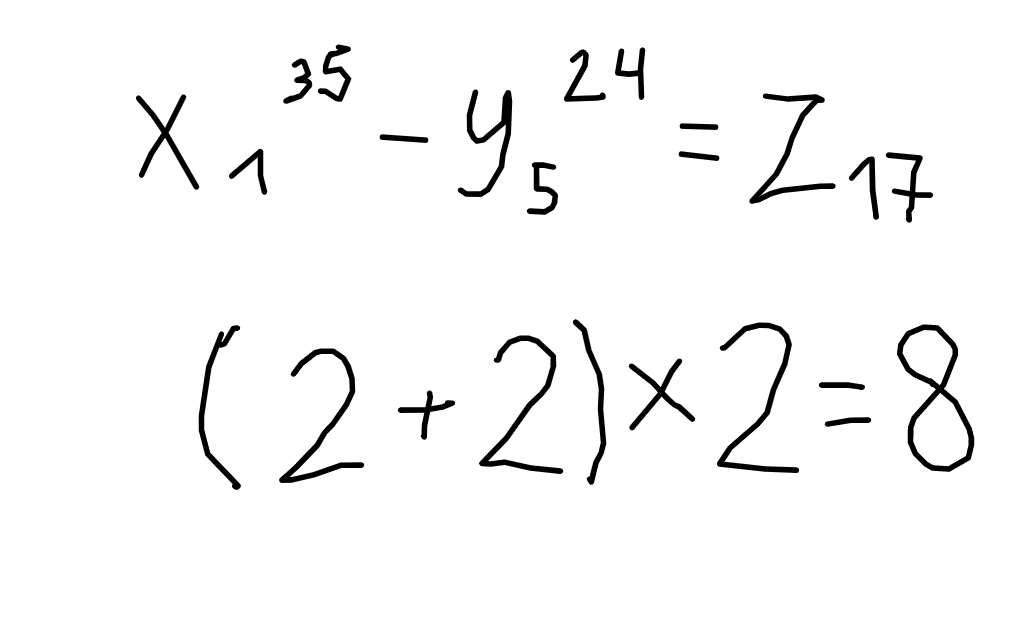 x₁³⁵ - y₅²⁴ = Z₁₇
(2 + 2) × 2 = 8